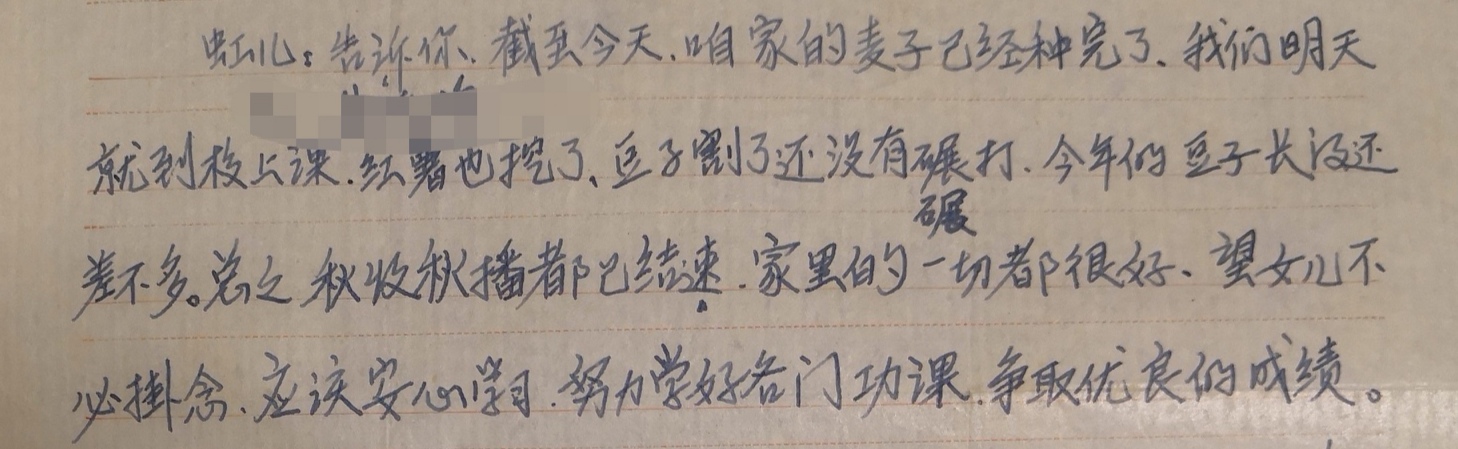 虹儿：告诉你、截至今天、咱家的麦子已经种完了、我们明天
就到校上课.红署也挖了、豆子割了还没有碾打.今年的豆子长没还
碾
差不多。总之秋收秋播都已结速.家里的一切都很好、望女儿不
必掛念、应该安心学习.努力学好各门功课.争取优良的成绩。